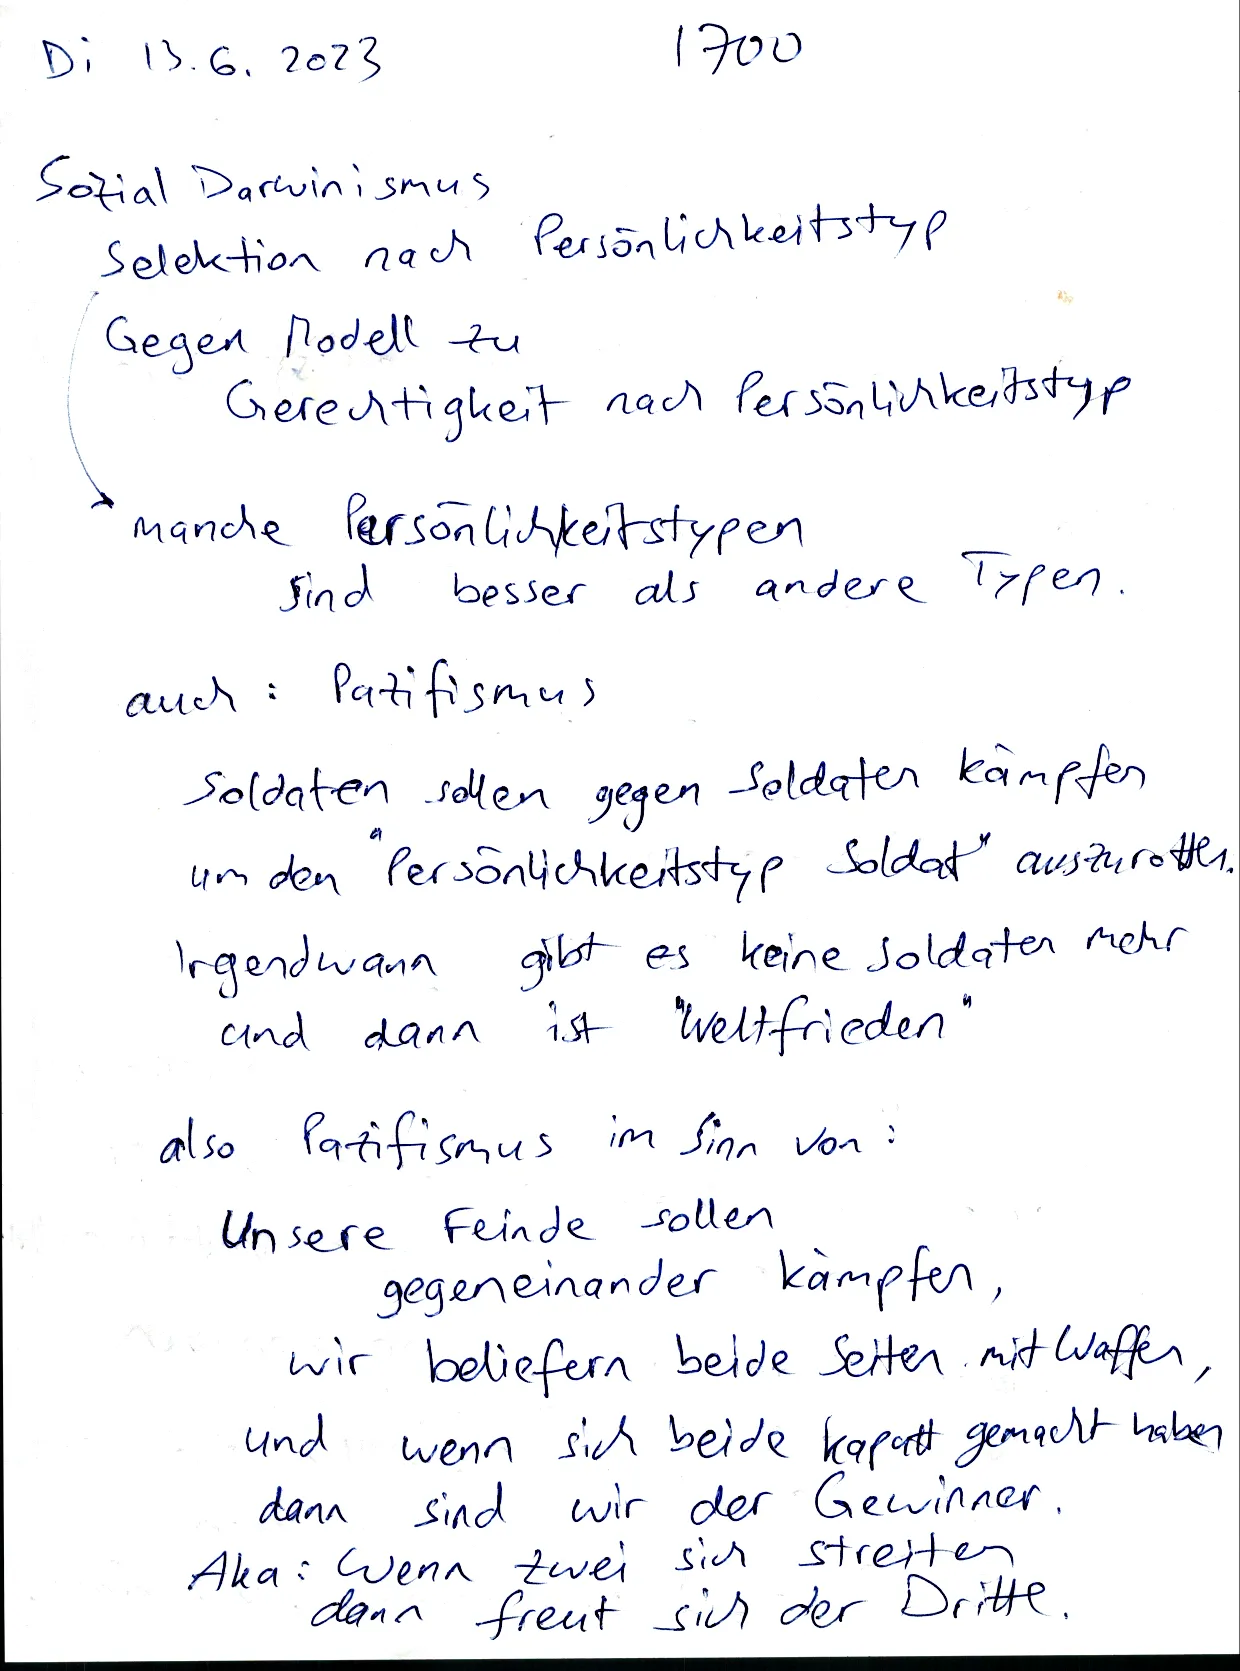 Di 13.6.2023 1700
Sozial Darwinismus
Selektion nach Persönlichkeitstyp
Gegen Modell zu
Gerechtigkeit nach Persönlichkeitstyp
manche Persönlichkeitstypen
sind besser als andere Typen.
auch: Pazifismus
Soldaten sollen gegen Soldaten kämpfen
um den "Persönlichkeitstyp Soldat" auszurotten.
Irgendwann gibt es keine Soldaten mehr
und dann ist "Weltfrieden"
also Pazifismus im Sinn von:
Unsere Feinde sollen
gegeneinander kämpfen,
wir beliefern beide Seiten mit Waffen,
und wenn sich beide kaputt gemacht haben
dann sind wir der Gewinner.
Aka: Wenn zwei sich streiten
dann freut sich der Dritte.